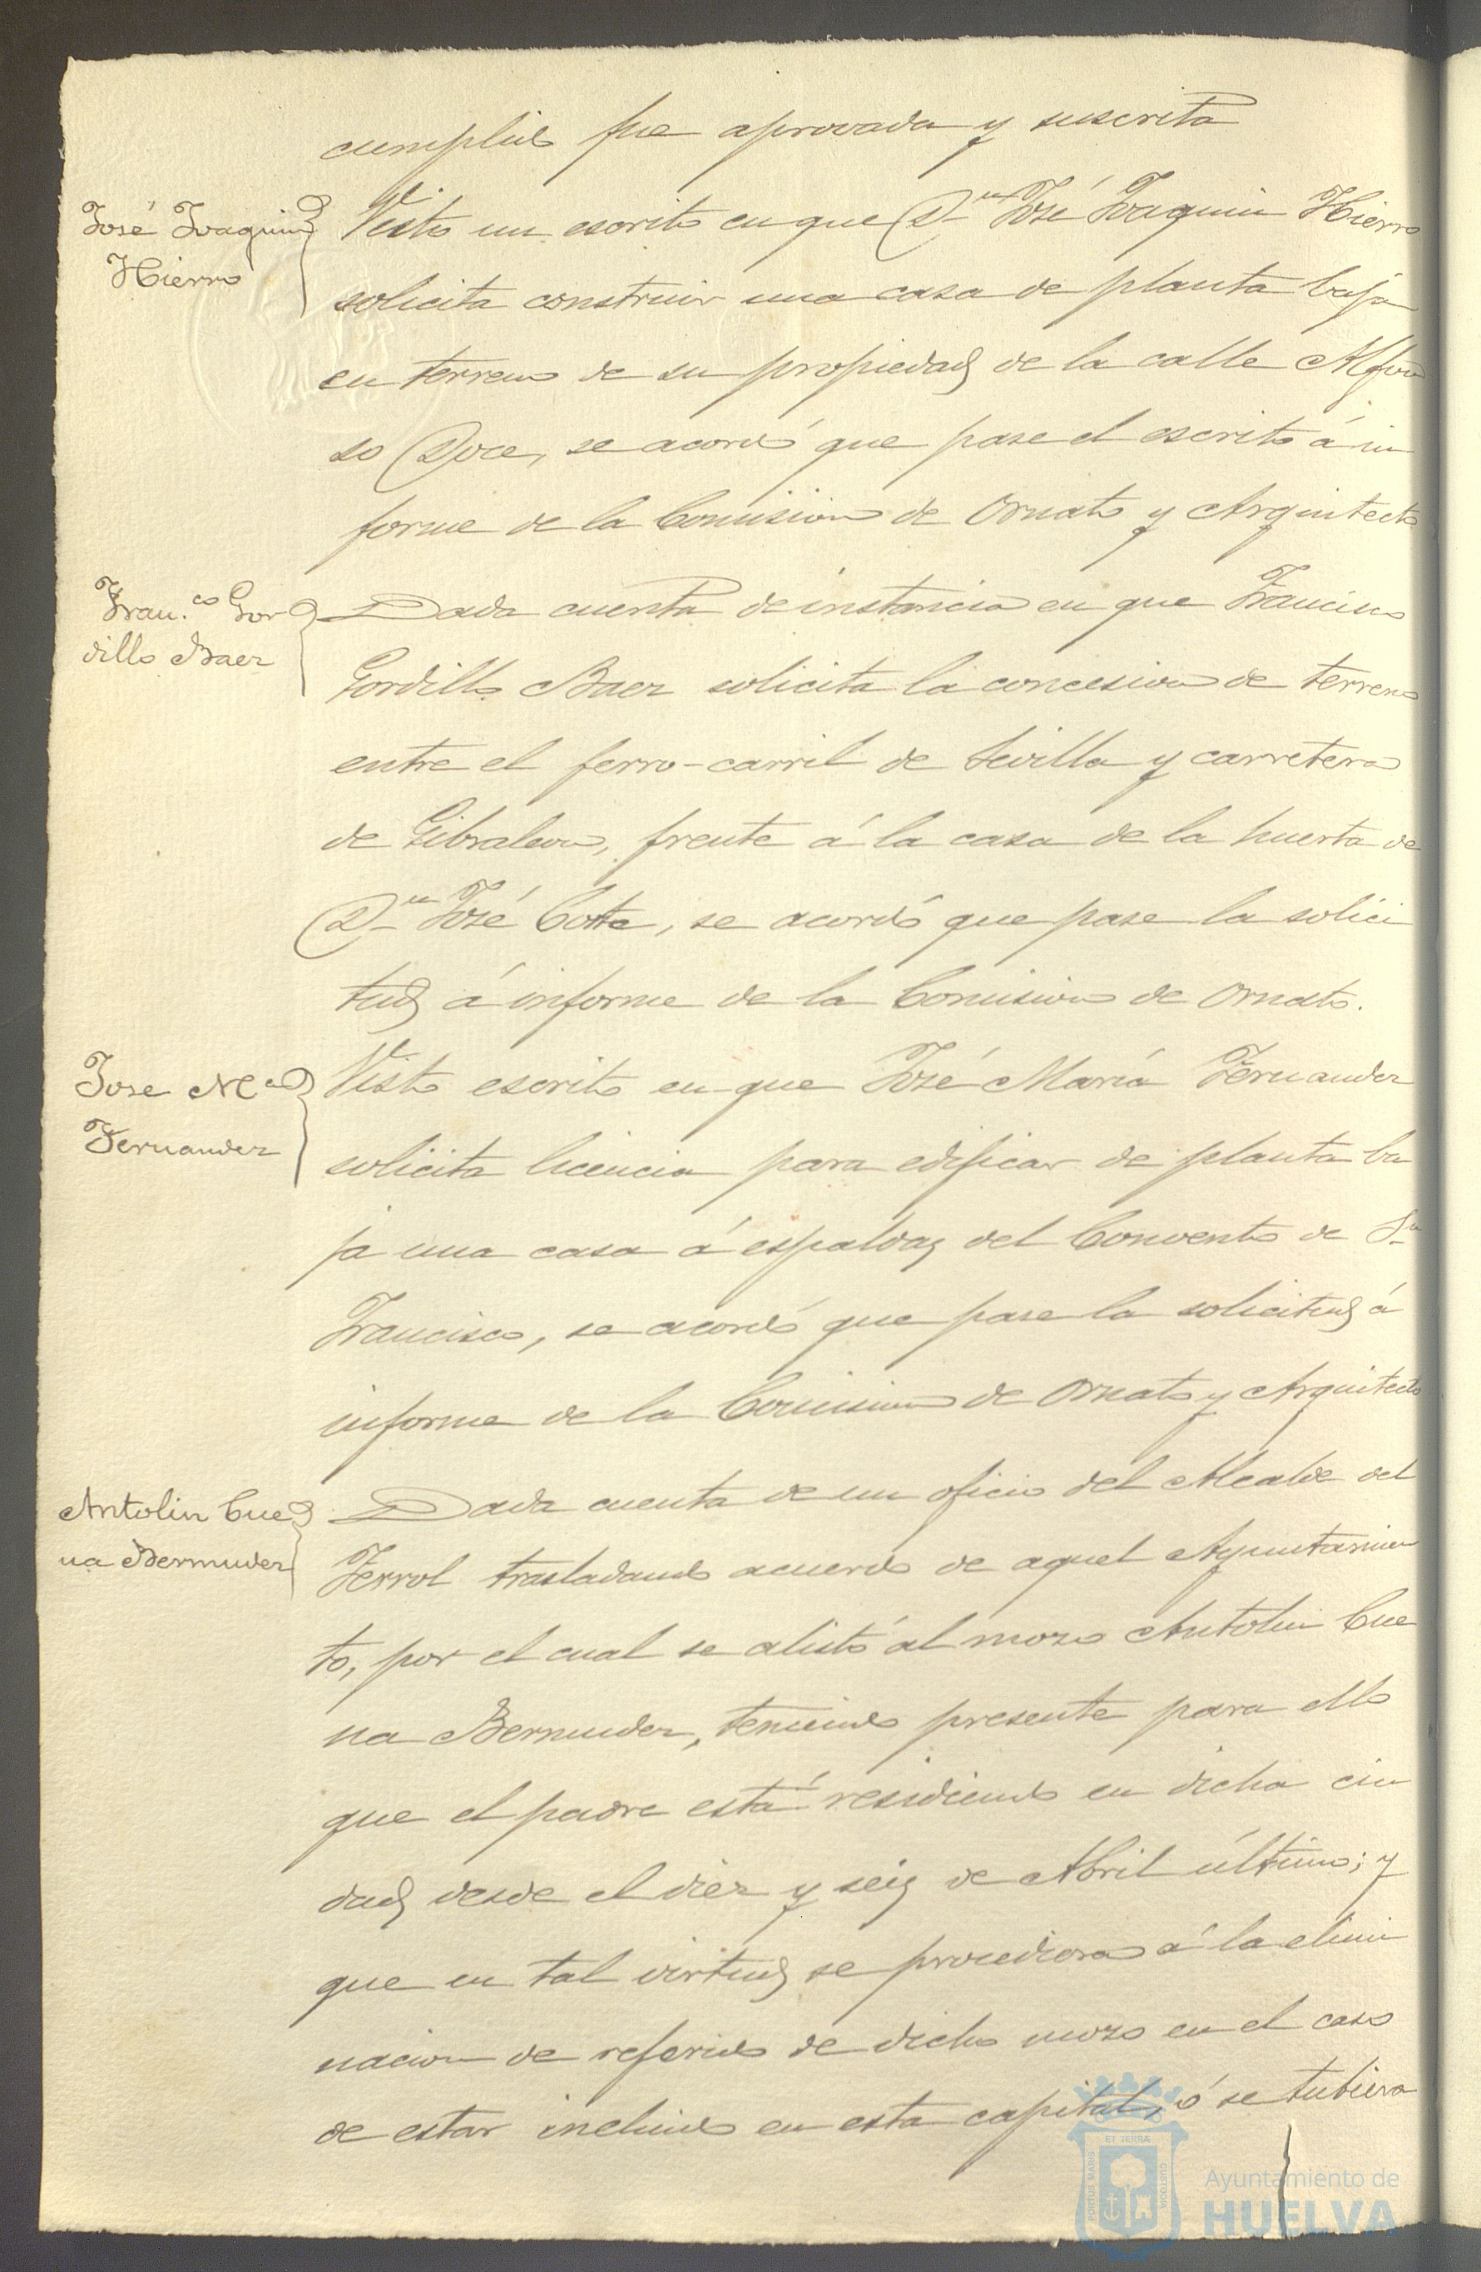 cumplido fue aprovada y suscrita
José Joaquin
Hierro
Visto un escrito en que Dn José Joaquin Hierro
solicita construir una casa de planta baja
en terreno de su propiedad de la calle Alfon
so Doce, se acordó que pase el escrito á in
forme de la Comision de Ornato y Arquitecto
Fran.co Gor
dillo Baez
Dada cuenta de instancia en que Francisco
Gordillo Baez solicita la concesion de terreno
entre el ferro-carril de Sevilla y carretera
de Gibraleon, frente á la casa de la huerta de
Dn José Cotte, se acordó que pase la solici
tud á informe de la Comision de Ornato.
Jose Ma
Fernandez
Visto escrito en que José María Fernandez
solicita licencia para edificar de planta ba
ja una casa á espaldas del Convento de Sn
Francisco, se acordó que pase la solicitud á
informe de la Comision de Ornato y Arquitecto
Antolin Cue
na Bermudez
Dada cuenta de un oficio del Alcalde del
Ferrol trasladando acuerdo de aquel Ayuntamien
to, por el cual se alistó al mozo Antolin Cue
na Bermudez, teniendo presente para ello
que el padre está residiendo en dicha ciu
dad desde el diez y seis de Abril último; y
que en tal virtud se procediera á la elimi
nacion de referido de dicho mozo en el caso
de estar incluido en esta capital, ó se tubiera
PORTUS MARIS
ET TERRÆ
CUSTODIA
Ayuntamiento de
HUELVA